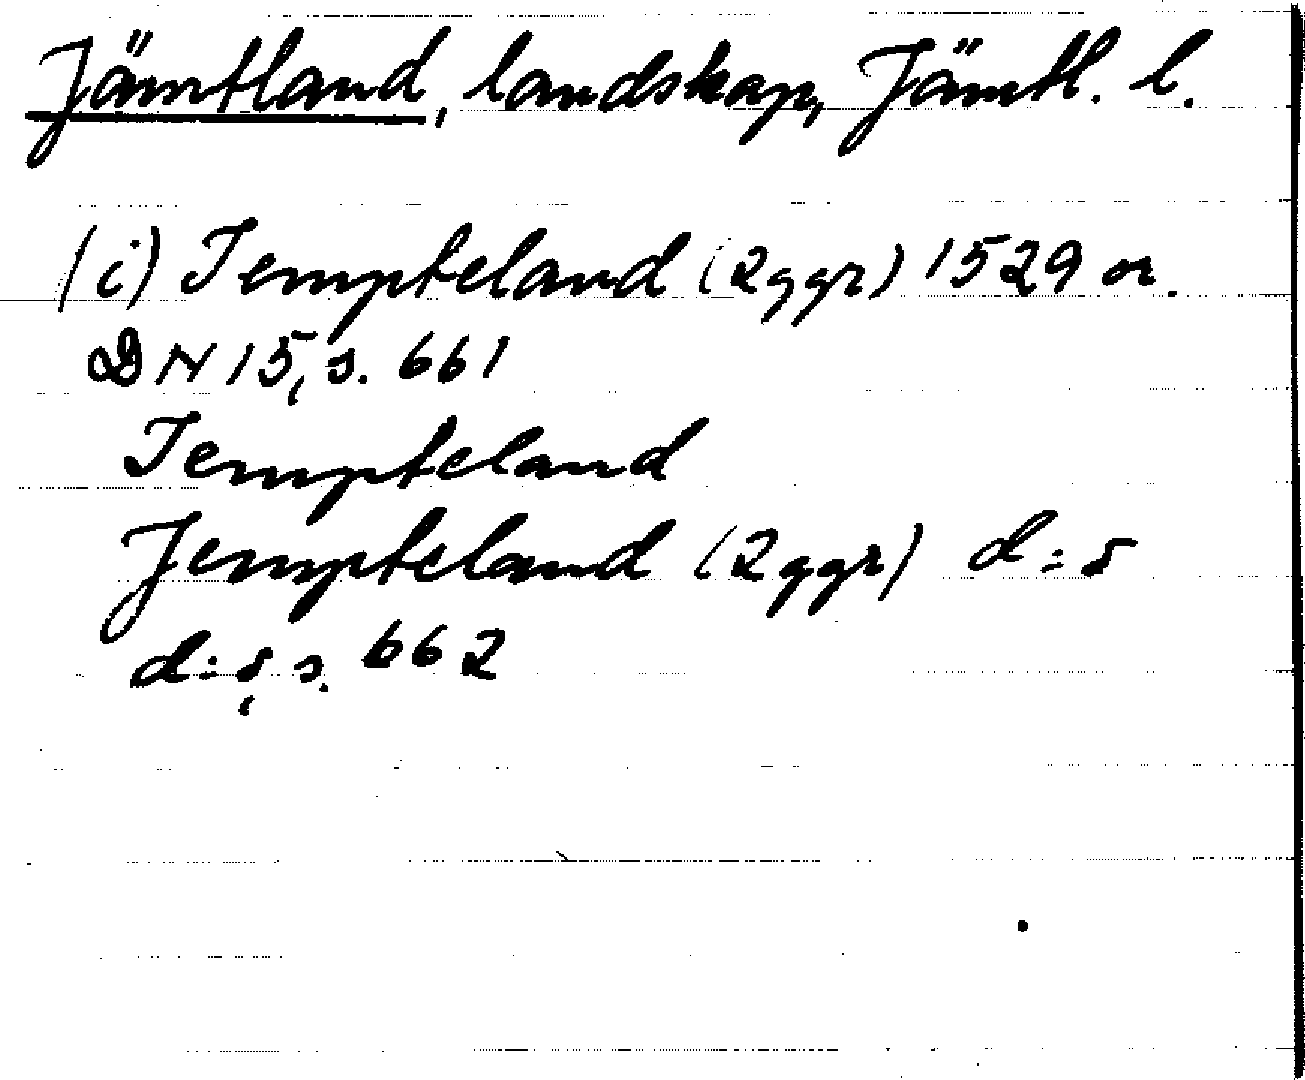 Jämtland, landskap, Jämtl. l.
(i) Iempteland (2ggr) 1529 or.
DN 15, s. 661
Iempteland
Jempteland (2ggr) d:o
d:o, s. 662